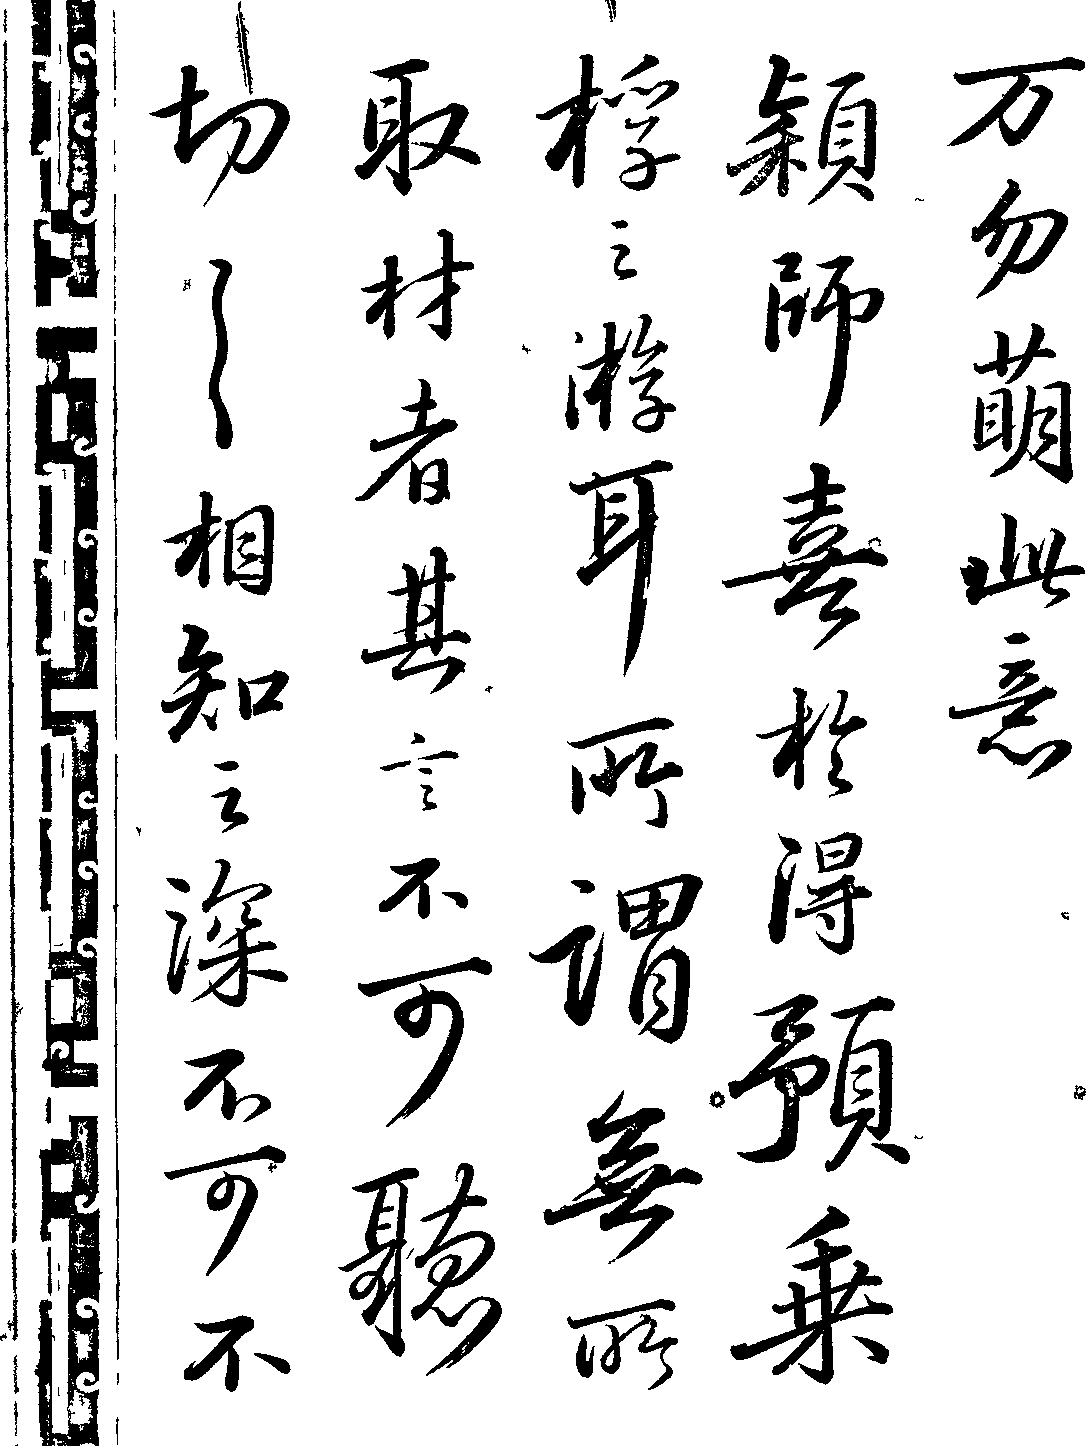 万勿萌此意
穎師喜於得預乘
桴之游耳所謂無所
取材者其言不可聽
切〻相知之深不可不